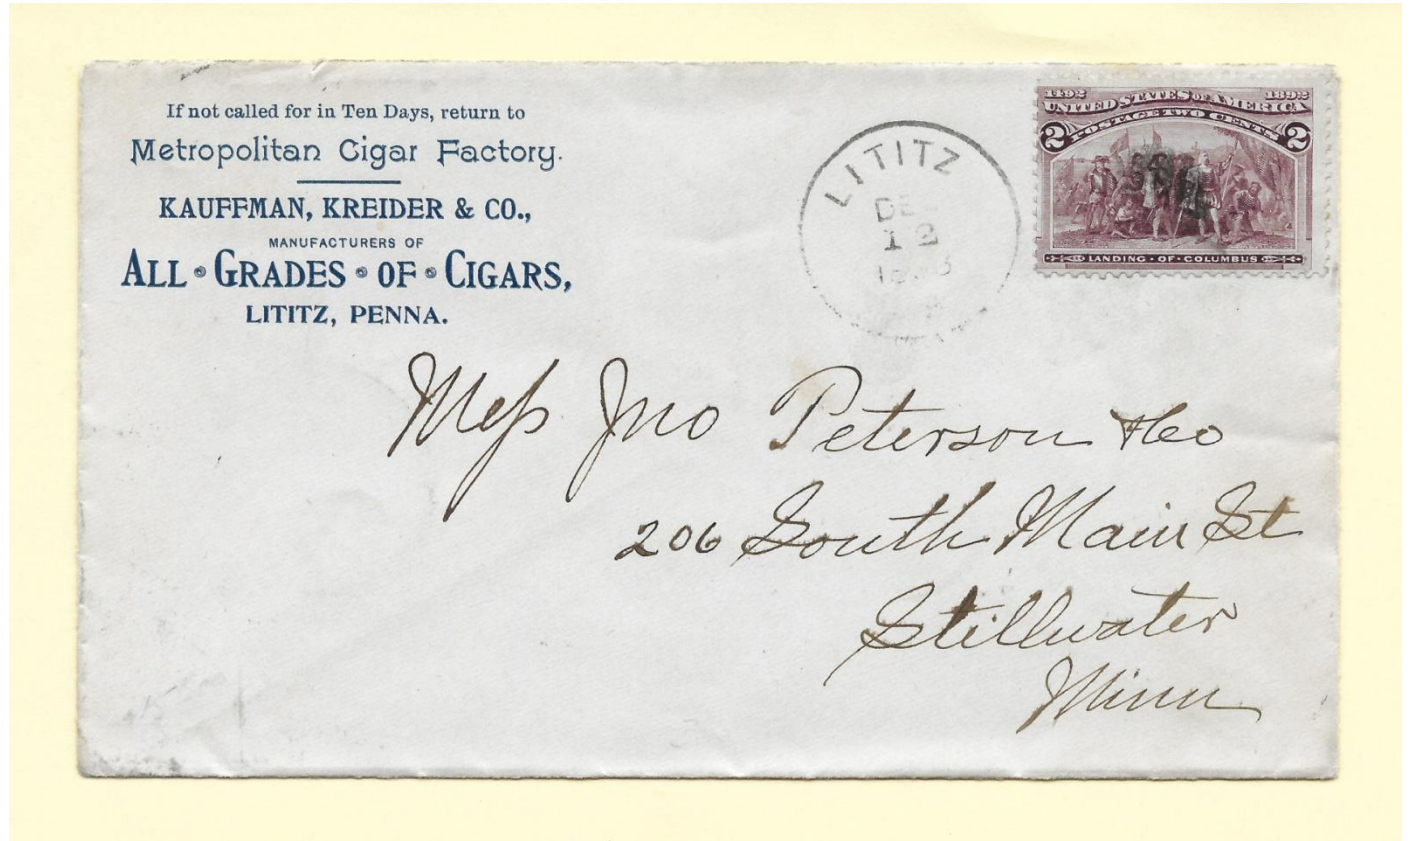 If not called for in Ten Days, return to
Metropolitan Cigar Factory.
KAUFFMAN, KREIDER & CO.,
MANUFACTURERS OF
ALL • GRADES • OF • CIGARS,
LITITZ, PENNA.
LITITZ
DEC
12
1492 1892
UNITED STATES OF AMERICA
POSTAGE TWO CENTS
2 2
LANDING • OF • COLUMBUS
Mess Jno Peterson & Co
206 South Main St
Stillwater
Minn